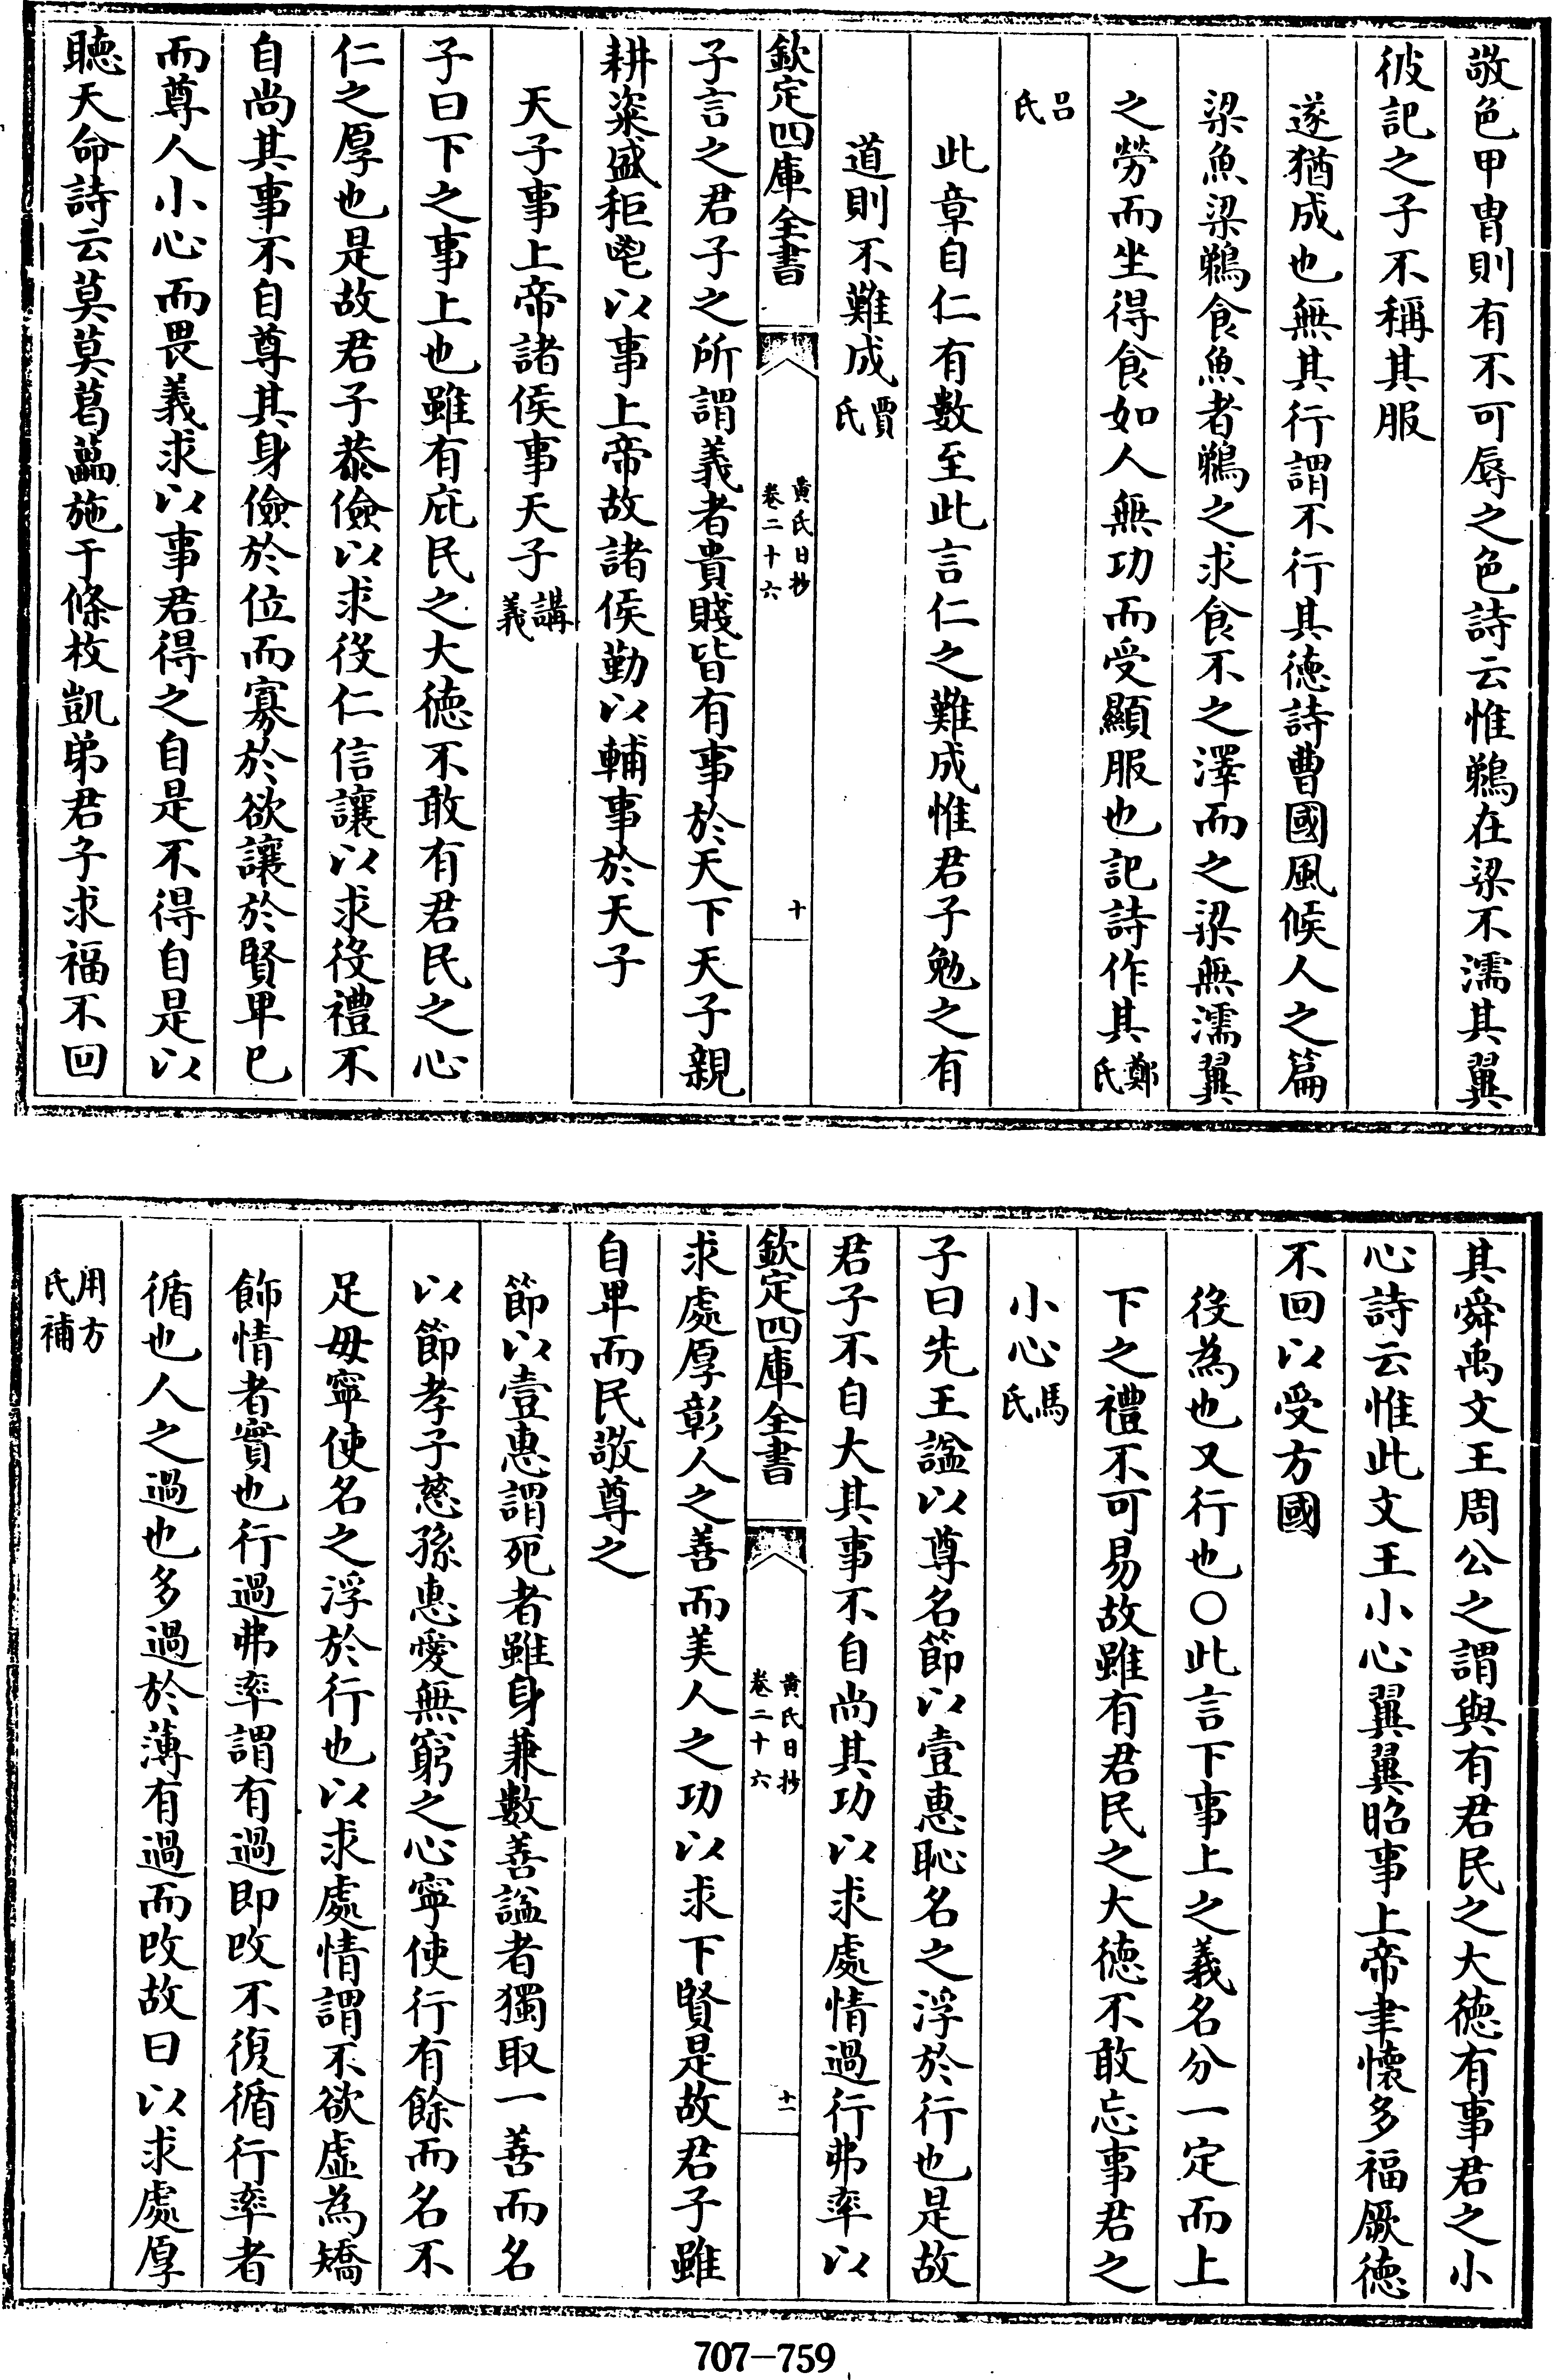 敬色甲冑則有不可辱之色詩云惟鵜在梁不濡其翼
彼記之子不稱其服
遂猶成也無其行謂不行其德詩曹國風候人之篇
梁魚梁鵜食魚者鵜之求食不之澤而之梁無濡翼
之勞而坐得食如人無功而受顯服也記詩作其鄭氏
呂氏
此章自仁有數至此言仁之難成惟君子勉之有
道則不難成賈氏
欽定四庫全書 黃氏日抄 卷二十六 十
子言之君子之所謂義者貴賤皆有事於天下天子親
耕粢盛秬鬯以事上帝故諸侯勤以輔事於天子
天子事上帝諸侯事天子講義
子曰下之事上也雖有庇民之大德不敢有君民之心
仁之厚也是故君子恭儉以求役仁信讓以求役禮不
自尚其事不自尊其身儉於位而寡於欲讓於賢卑已
而尊人小心而畏義求以事君得之自是不得自是以
聽天命詩云莫莫葛藟施于條枚凱弟君子求福不回
其舜禹文王周公之謂與有君民之大德有事君之小
心詩云惟此文王小心翼翼昭事上帝聿懷多福厥德
不回以受方國
役為也又行也○此言下事上之義名分一定而上
下之禮不可易故雖有君民之大德不敢忘事君之
小心馬氏
子曰先王諡以尊名節以壹惠恥名之浮於行也是故
君子不自大其事不自尚其功以求處情過行弗率以
欽定四庫全書 黃氏日抄 卷二十六 十一
求處厚彰人之善而美人之功以求下賢是故君子雖
自卑而民敬尊之
節以壹惠謂死者雖身兼數善諡者獨取一善而名
以節孝子慈孫惠愛無窮之心寧使行有餘而名不
足毋寧使名之浮於行也以求處情謂不欲虛為矯
飾情者實也行過弗率謂有過即改不復循行率者
循也人之過也多過於薄有過而改故曰以求處厚
用方氏補
707-759